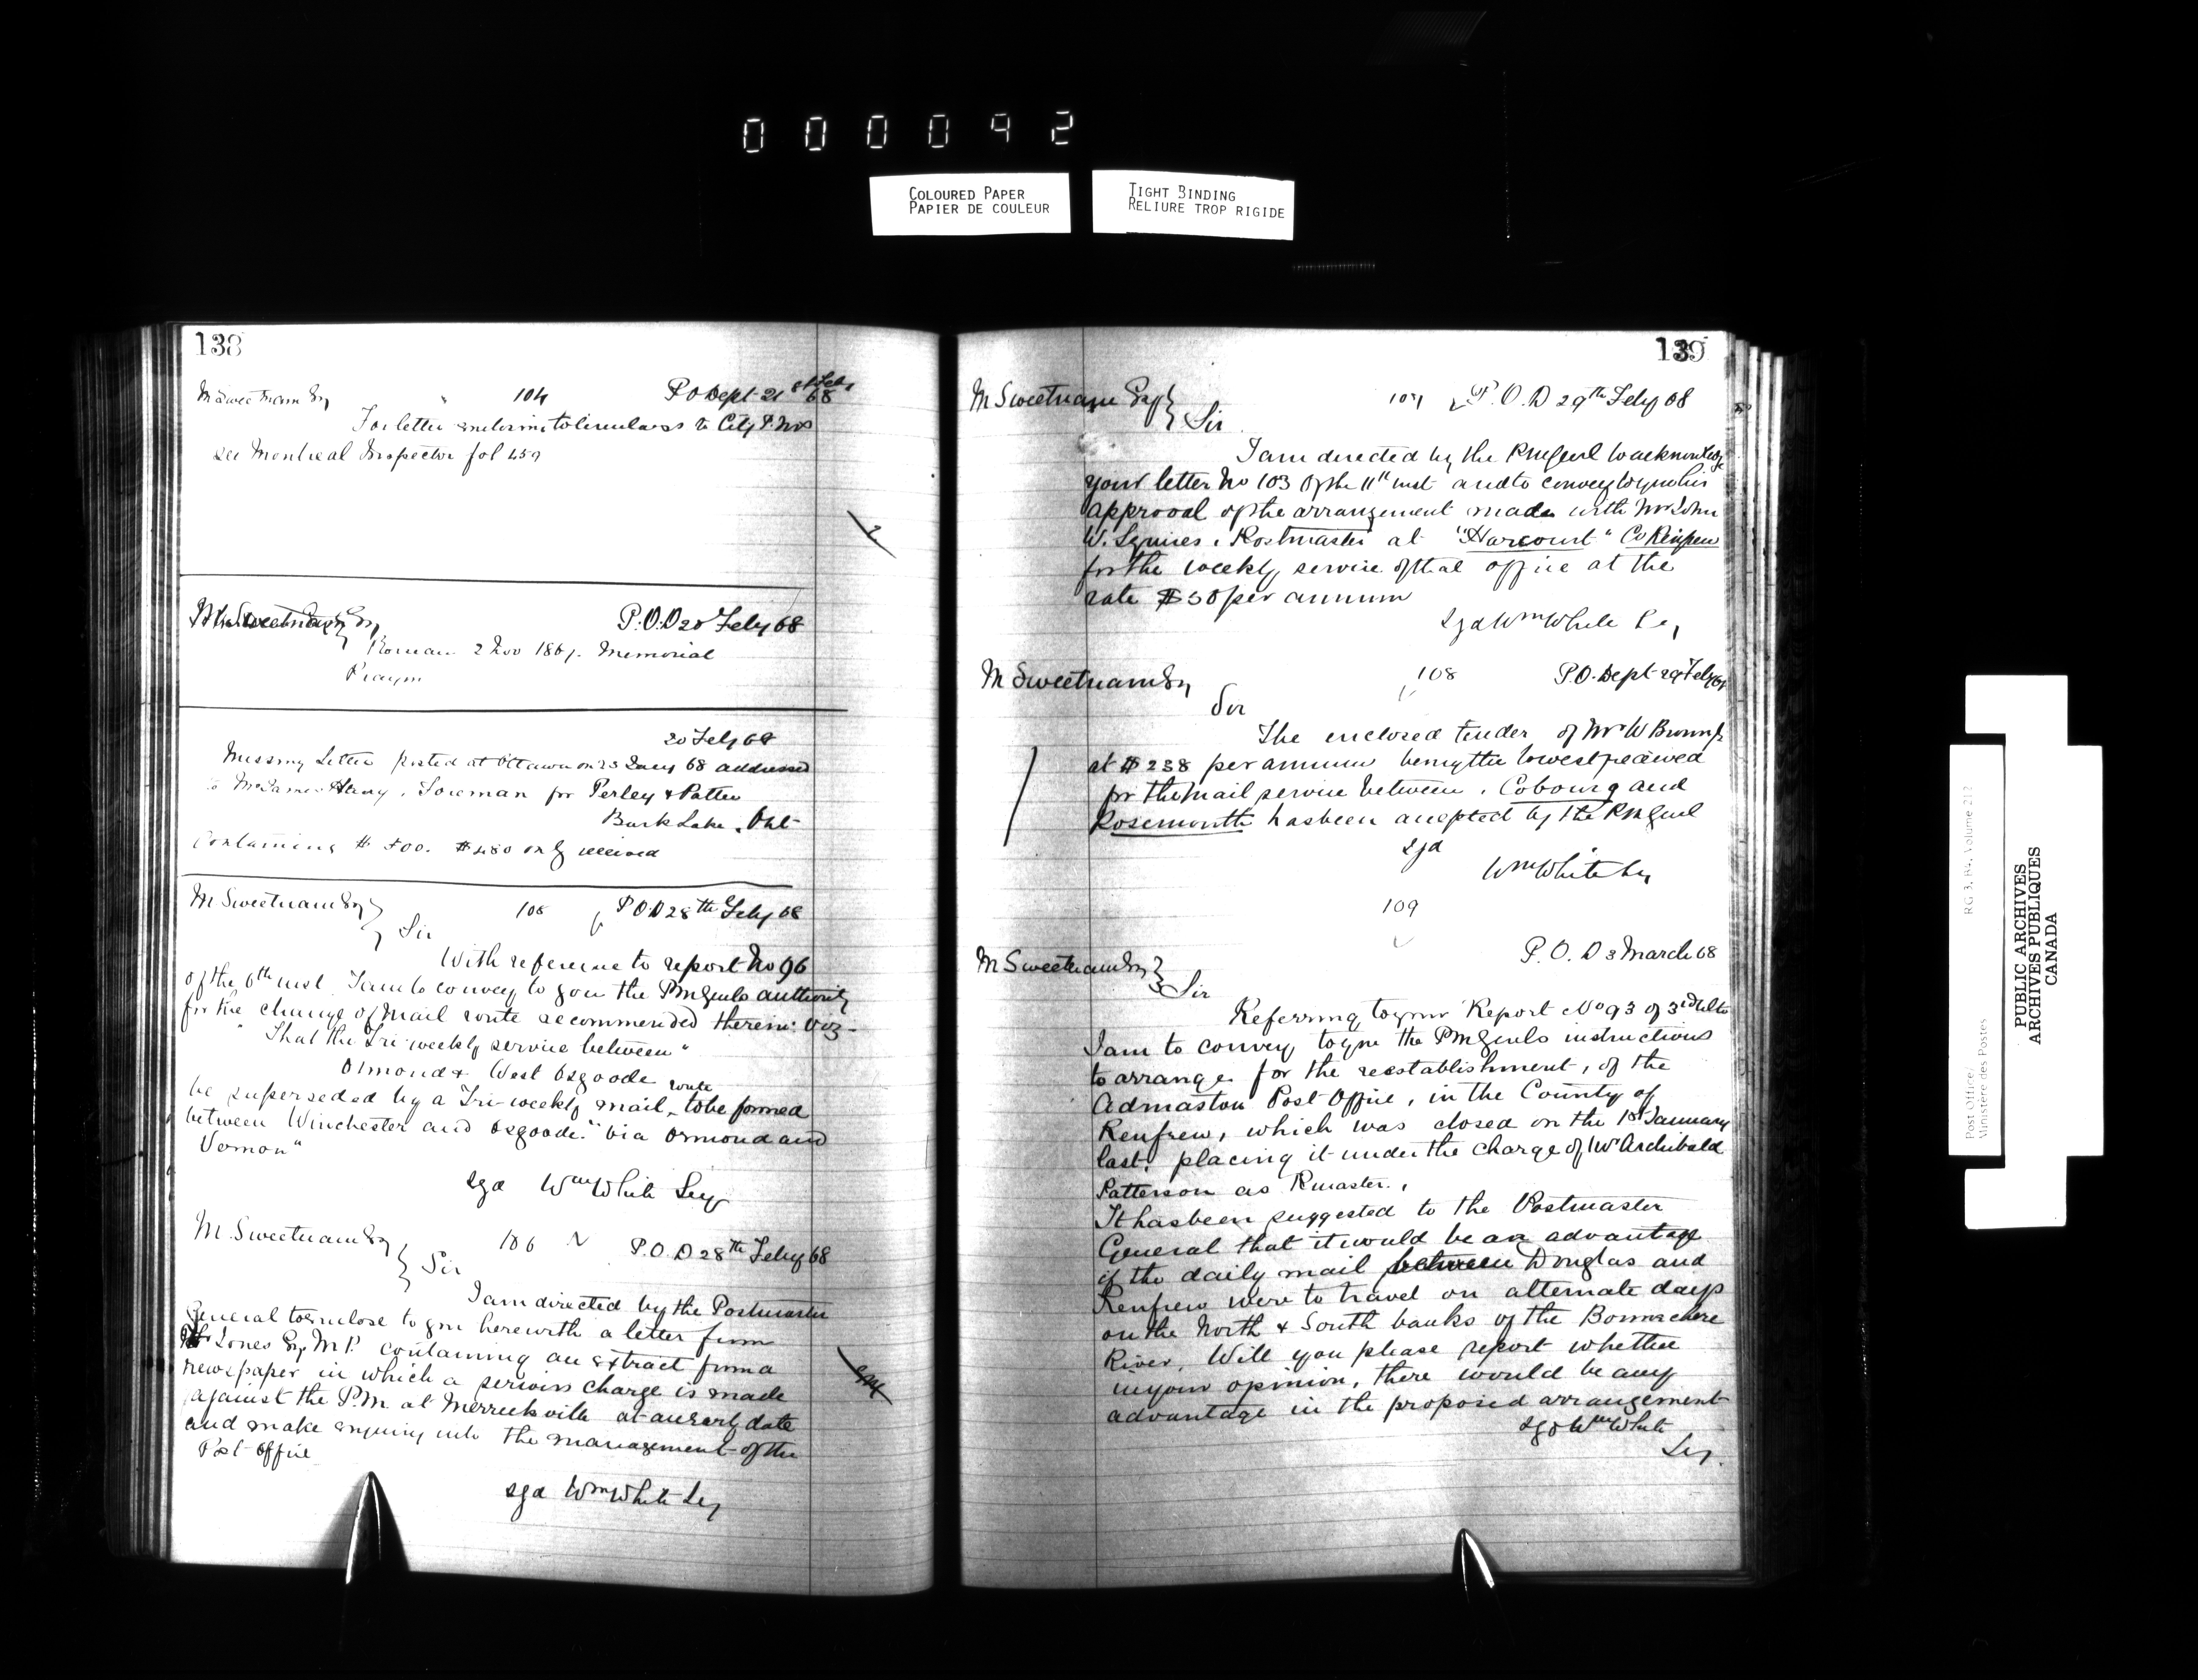 000092
COLOURED PAPER
PAPIER DE COULEUR
TIGHT BINDING
RELIURE TROP RIGIDE
138
M Sweetnam Esq " 104 P O Dept 21st Feby 68
For letter enclosing to Circulars to City P. Mrs
see Montreal Inspector fol 459
M Sweetnam Esq P.O.D 20 Feby 68
2 Nov 1867. Memorial
20 Feby 68
Missing Letter posted at Ottawa on 23 Jany 68 addressed
to Mr James Henry, Foreman for Perley & Pattee
Bark Lake, Ont
Containing $500. $480 only received
M Sweetnam Esq 105 P.O.D 28th Feby 68
Sir
With reference to report No 96
of the 6th inst I am to convey to you the PMGenls authority
for the change of Mail route recommended therein: viz-
"That the Tri-weekly service between"
Ormond & West Osgoode
be superseded by a Tri-weekly mail route to be formed
between Winchester and Osgoode" via Ormond and
Vernon"
sgd Wm White Secy
M. Sweetnam Esq 106 P.O.D 28th Feby 68
Sir
I am directed by the Postmaster
General to enclose to you herewith a letter from
Jones Esq M.P. containing an extract from a
newspaper in which a serious charge is made
against the P.M. at Merrickville at an early date
and make enquiry into the management of the
Post Office
sgd Wm White Secy
139
M Sweetnam Esq 107 P.O.D 29th Feby 68
Sir
I am directed by the PMGenl to acknowledge
your letter No 103 of the 11th inst and to convey to you his
approval of the arrangement made with Mr John
W. Squires, Postmaster at "Harcourt" Co Renfrew
for the weekly service of that office at the
rate $30 per annum
Sgd Wm White Secy
M Sweetnam Esq 108 P.O. Dept 29 Feby 68
Sir
The enclosed tender of Mr W Brown Jr
at $238 per annum being the lowest received
for the mail service between, Cobourg and
Rosemonth has been accepted by the PMGenl
sgd
Wm White Secy
109
P.O.D 3 March 68
M Sweetnam Esq
Sir
Referring to your Report No 93 of 3rd Ulto
I am to convey to you the PMGenls instructions
to arrange for the reestablishment, of the
Admaston Post Office, in the County of
Renfrew, which was closed on the 1st January
last, placing it under the charge of Mr Archibald
Patterson as Pmaster.
It has been suggested to the Postmaster
General that it would be an advantage
if the daily mail between Douglas and
Renfrew were to travel on alternate days
on the North & South banks of the Bonnechere
River. Will you please report whether
in your opinion, there would be any
advantage in the proposed arrangement
sgd Wm White
Secy.
Post Office/
Ministère des Postes
RG 3, B4, Volume 212
PUBLIC ARCHIVES
ARCHIVES PUBLIQUES
CANADA